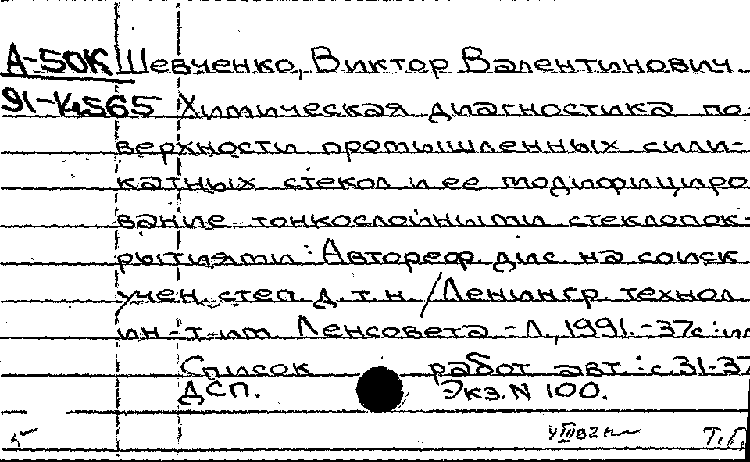 А-50К Шевченко, Виктор Валентинович.
91-4565 Химическая диагностика по-
верхности промышленных сили-
катных стекол и ее модифициро
вание тонкослойными стеклопок-
рытиями : Автореф дис. на соиск
учен. степ. д.т.н. / Ленингр. технол
ин-т им Ленсовета - Л., 1991.-37с: ил
Список работ авт.: с.31-37
ДСП. Экз. N 100.
Т.Г.